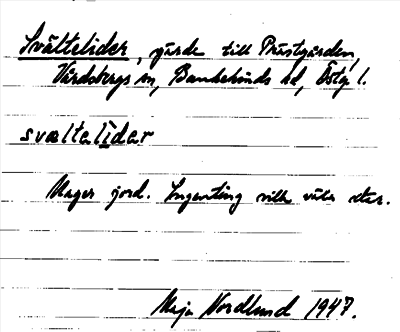 Svältelider, gärde till Prästgården,
Vårdsbergs sn, Bankekinds hd, Östg. l.
svæltelìdar
Mager jord. Ingenting ville växa där.
Maja Nordlund 1947.